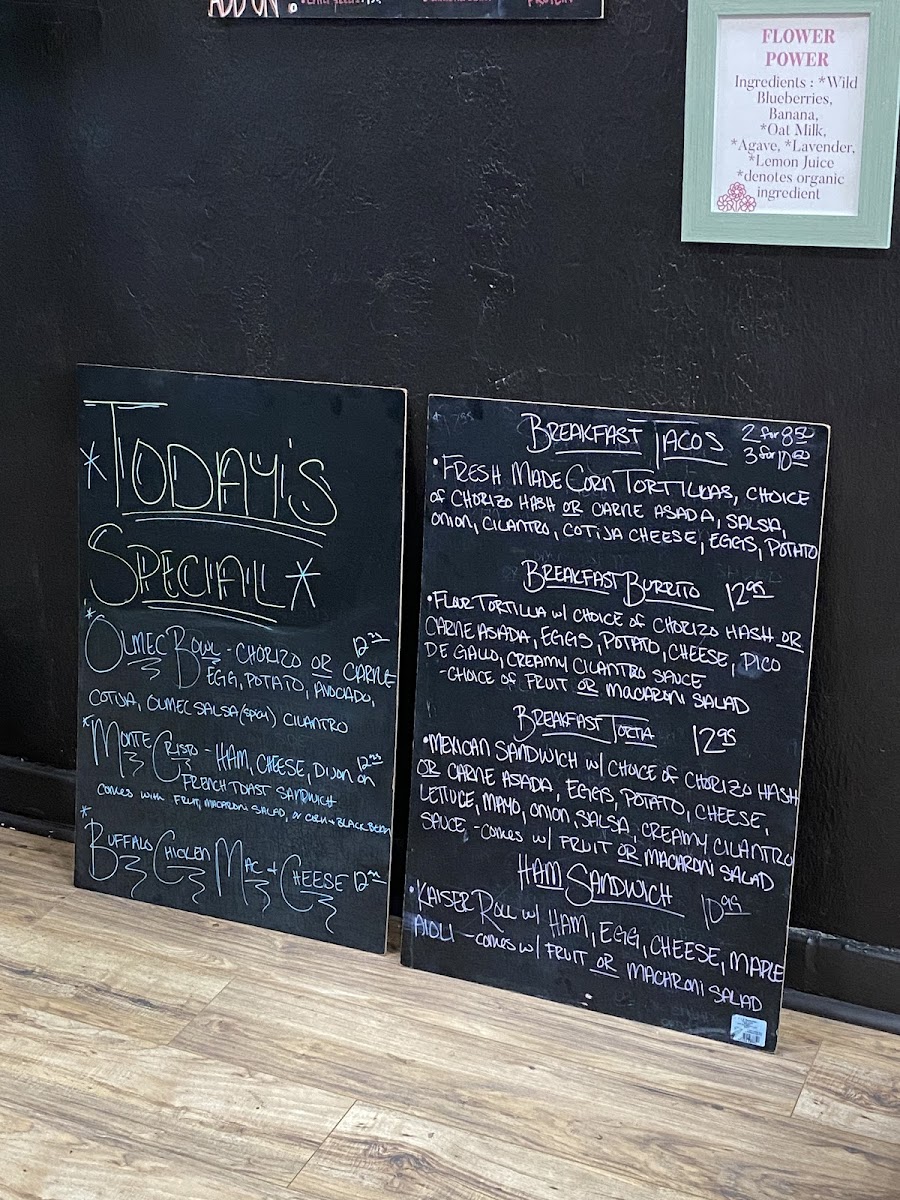 ADD ON :
PROTEIN
FLOWER
POWER
Ingredients : *Wild
Blueberries,
Banana,
*Oat Milk,
*Agave, *Lavender,
*Lemon Juice
*denotes organic
ingredient
*TODAY'S
SPECIAL*
*OLMEC BOWL - CHORIZO OR CARNE
EGG, POTATO, AVOCADO,
COTIJA, OLMEC SALSA (SPICY) CILANTRO
*MONTE CRISTO - HAM, CHEESE, DIJON on
FRENCH TOAST SANDWICH
comes with FRUIT, MACARONI SALAD, or CORN + BLACK BEAN
*BUFFALO CHICKEN MAC + CHEESE
BREAKFAST TACOS 2 for 8.50
3 for 10.50
• FRESH MADE CORN TORTILLAS, CHOICE
of CHORIZO HASH OR CARNE ASADA, SALSA,
ONION, CILANTRO, COTIJA CHEESE, EGGS, POTATO
BREAKFAST BURRITO 12.95
• FLOUR TORTILLA w/ CHOICE OF CHORIZO HASH OR
CARNE ASADA, EGGS, POTATO, CHEESE, PICO
DE GALLO, CREAMY CILANTRO SAUCE
- CHOICE OF FRUIT OR MACARONI SALAD
BREAKFAST TORTIA 12.95
• MEXICAN SANDWICH w/ CHOICE OF CHORIZO HASH
OR CARNE ASADA, EGGS, POTATO, CHEESE,
LETTUCE, MAYO, ONION, SALSA, CREAMY CILANTRO
SAUCE - COMES w/ FRUIT OR MACARONI SALAD
HAM SANDWICH 10.95
• KAISER ROLL w/ HAM, EGG, CHEESE, MAPLE
AIOLI - COMES w/ FRUIT OR MACARONI SALAD